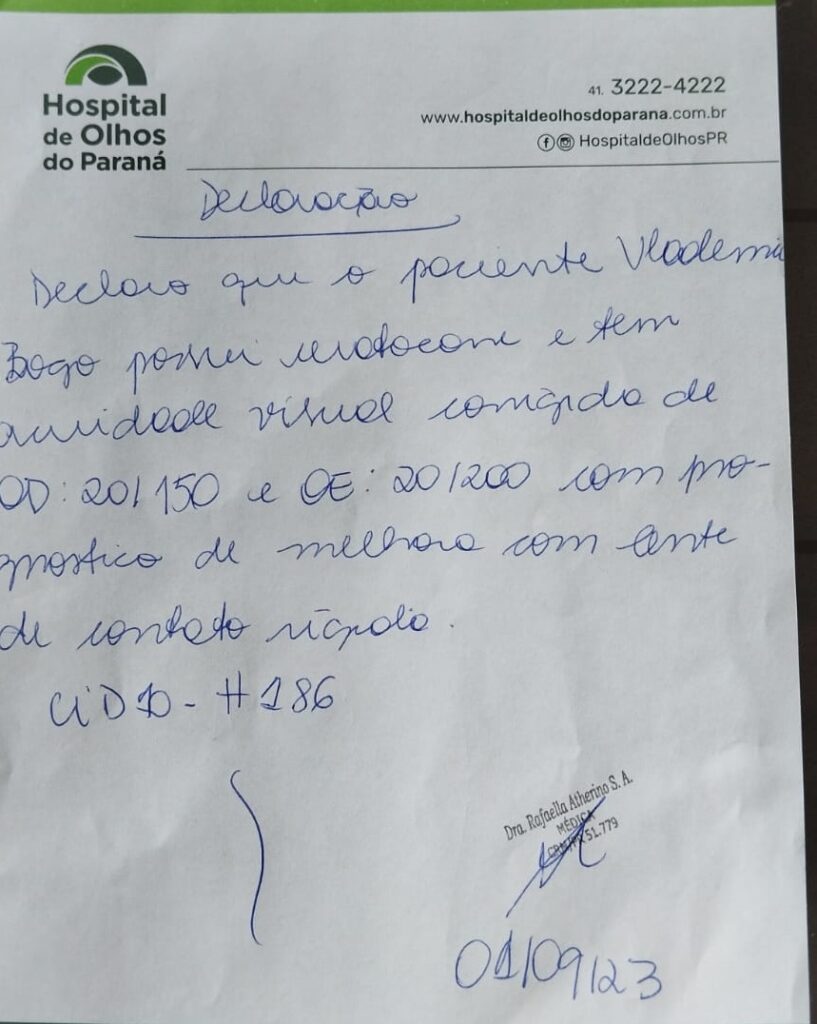 Hospital
de Olhos
do Paraná
41. 3222-4222
www.hospitaldeolhosdoparana.com.br
HospitaldeOlhosPR
Declaração
Declaro que o paciente Vlademir
Bogo possui ceratocone e tem
acuidade visual corrigida de
OD: 20/150 e OE: 20/200 com pro-
gnostico de melhora com lente
de contato rígida.
CID10 - H186
Dra. Rafaella Atherino S. A.
MÉDICA
CRM/PR 51.779
01/09/23